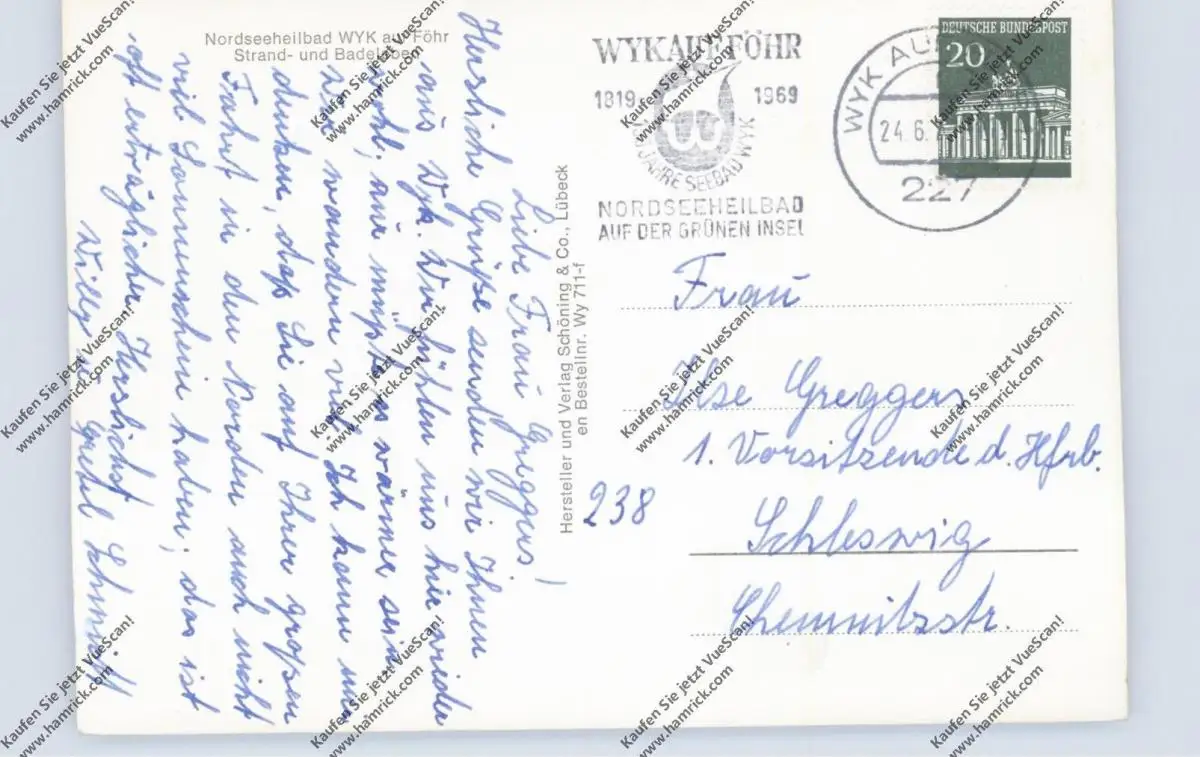 Nordseeheilbad WYK auf Föhr
Strand- und Badeleben
WYK AUF FÖHR
1819 1969
JAHRE SEEBAD WYK
NORDSEEHEILBAD
AUF DER GRÜNEN INSEL
WYK AUF
24.6.
227
DEUTSCHE BUNDESPOST
20
Liebe Frau Greggers,
Herzliche Grüße senden wir Ihnen
aus Wyk. Wir fühlen uns hier wieder
wohl; nur müßte es wärmer sein.
Wir wandern viel. Ich kann mir
denken, daß Sie auf Ihrer großen
Fahrt in den Norden auch nicht
viel Sonnenschein haben; das ist
oft erträglicher. Herzlichst
Willy u. Gretel Schmidt
Hersteller und Verlag Schöning & Co., Lübeck
en Bestellnr. Wy 711-f
Frau
Ilse Greggers
1. Vorsitzende d. Hfrb.
238
Schleswig
Chemnitzstr.
Kaufen Sie jetzt VueScan!
www.hamrick.com